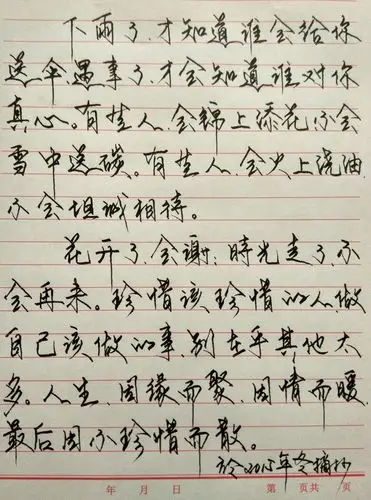 下雨了,才知道谁会给你
送伞,遇事了,才会知道谁对你
真心。有些人,会锦上添花,不会
雪中送碳。有些人,会火上浇油,
不会坦诚相待。
花开了,会谢;時光走了,不
会再来。珍惜该珍惜的人,做
自己该做的事,别在乎其他太
多。人生,因缘而聚,因情而暖,
最后因不珍惜而散。
於2015年冬摘抄
年 月 日 第 页共 页